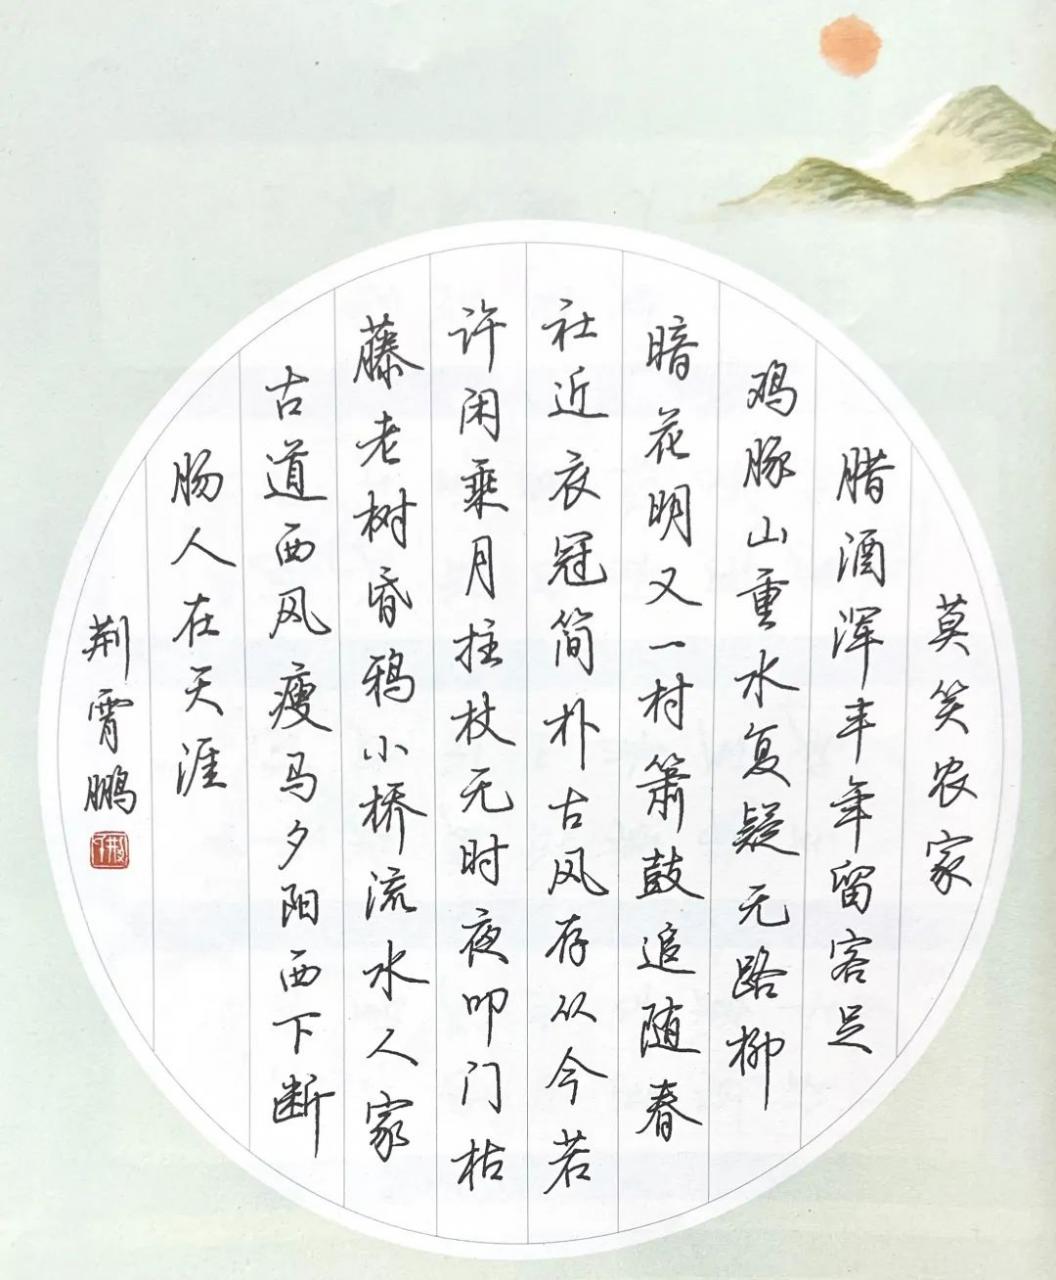 莫笑农家
腊酒浑丰年留客足
鸡豚山重水复疑无路柳
暗花明又一村箫鼓追随春
社近衣冠简朴古风存从今若
许闲乘月拄杖无时夜叩门枯
藤老树昏鸦小桥流水人家
古道西风瘦马夕阳西下断
肠人在天涯
荆霄鹏